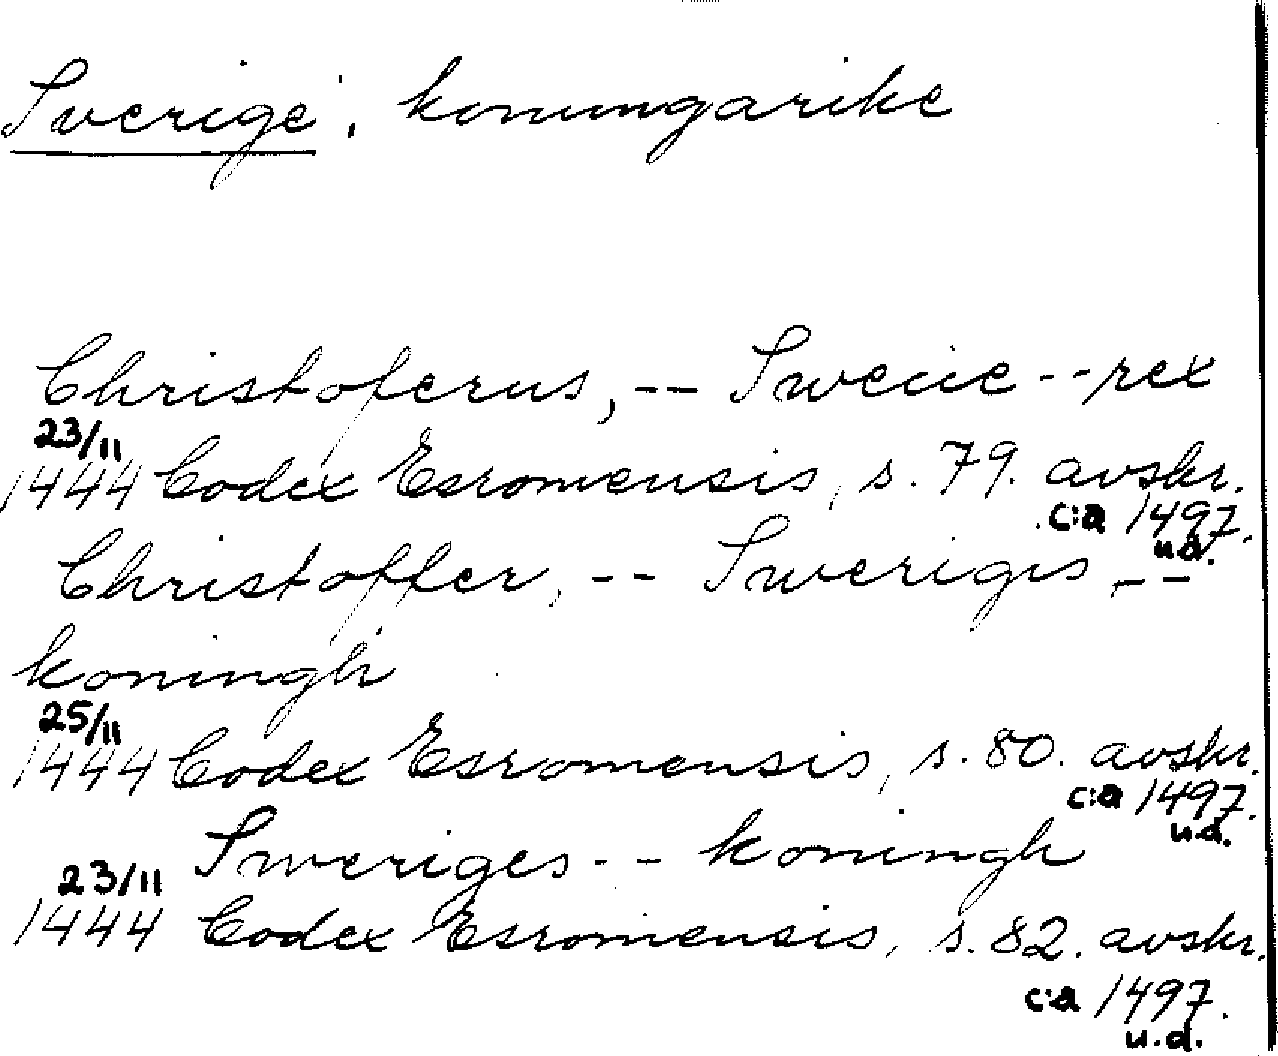 Sverige, konungarike
Christoferus, -- Swecie -- rex
23/11
1444 Codex Esromensis, s. 79. avskr.
c:a 1497.
u.d.
Christoffer, -- Sweriges, --
koningh
25/11
1444 Codex Esromensis, s. 80. avskr.
c:a 1497.
u.d.
Sweriges -- koningh
23/11
1444 Codex Esromensis, s. 82. avskr.
c:a 1497.
u.d.